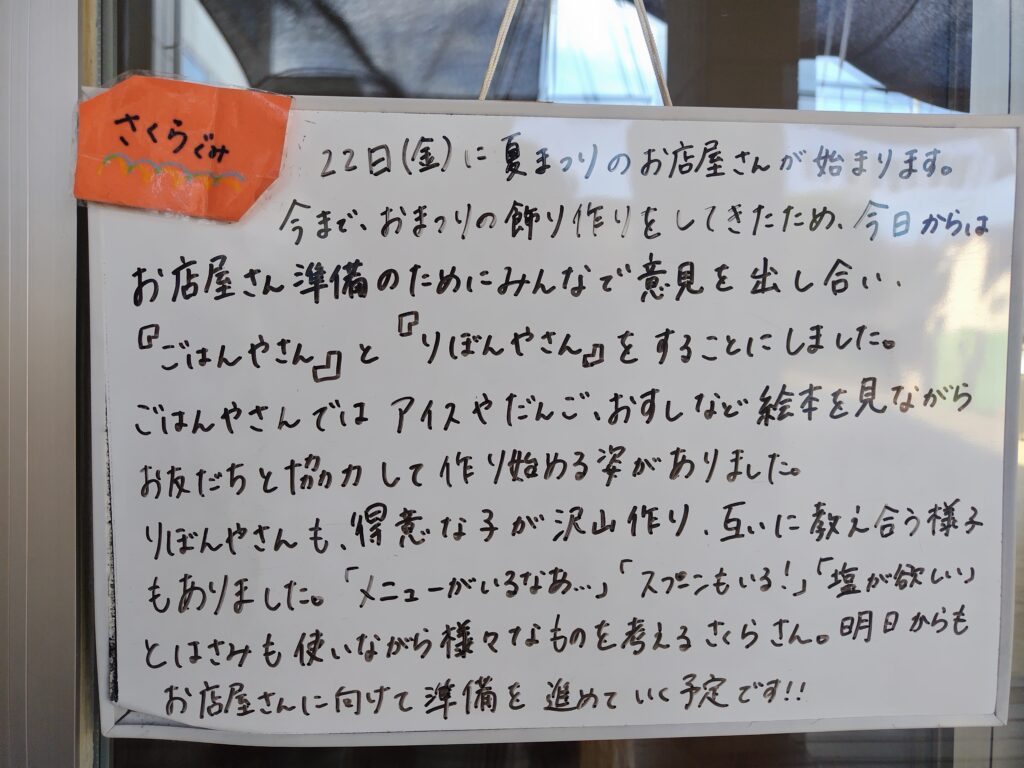 さくらぐみ
22日(金)に夏まつりのお店屋さんが始まります。
今まで、おまつりの飾り作りをしてきたため、今日からは
お店屋さん準備のためにみんなで意見を出し合い、
『ごはんやさん』と『りぼんやさん』をすることにしました。
ごはんやさんではアイスやだんご、おすしなど絵本を見ながら
お友だちと協力して作り始める姿がありました。
りぼんやさんも、得意な子が沢山作り、互いに教え合う様子
もありました。「メニューがいるなあ…」「スプーンもいる!」「塩が欲しい」
とはさみも使いながら様々なものを考えるさくらさん。明日からも
お店屋さんに向けて準備を進めていく予定です!!